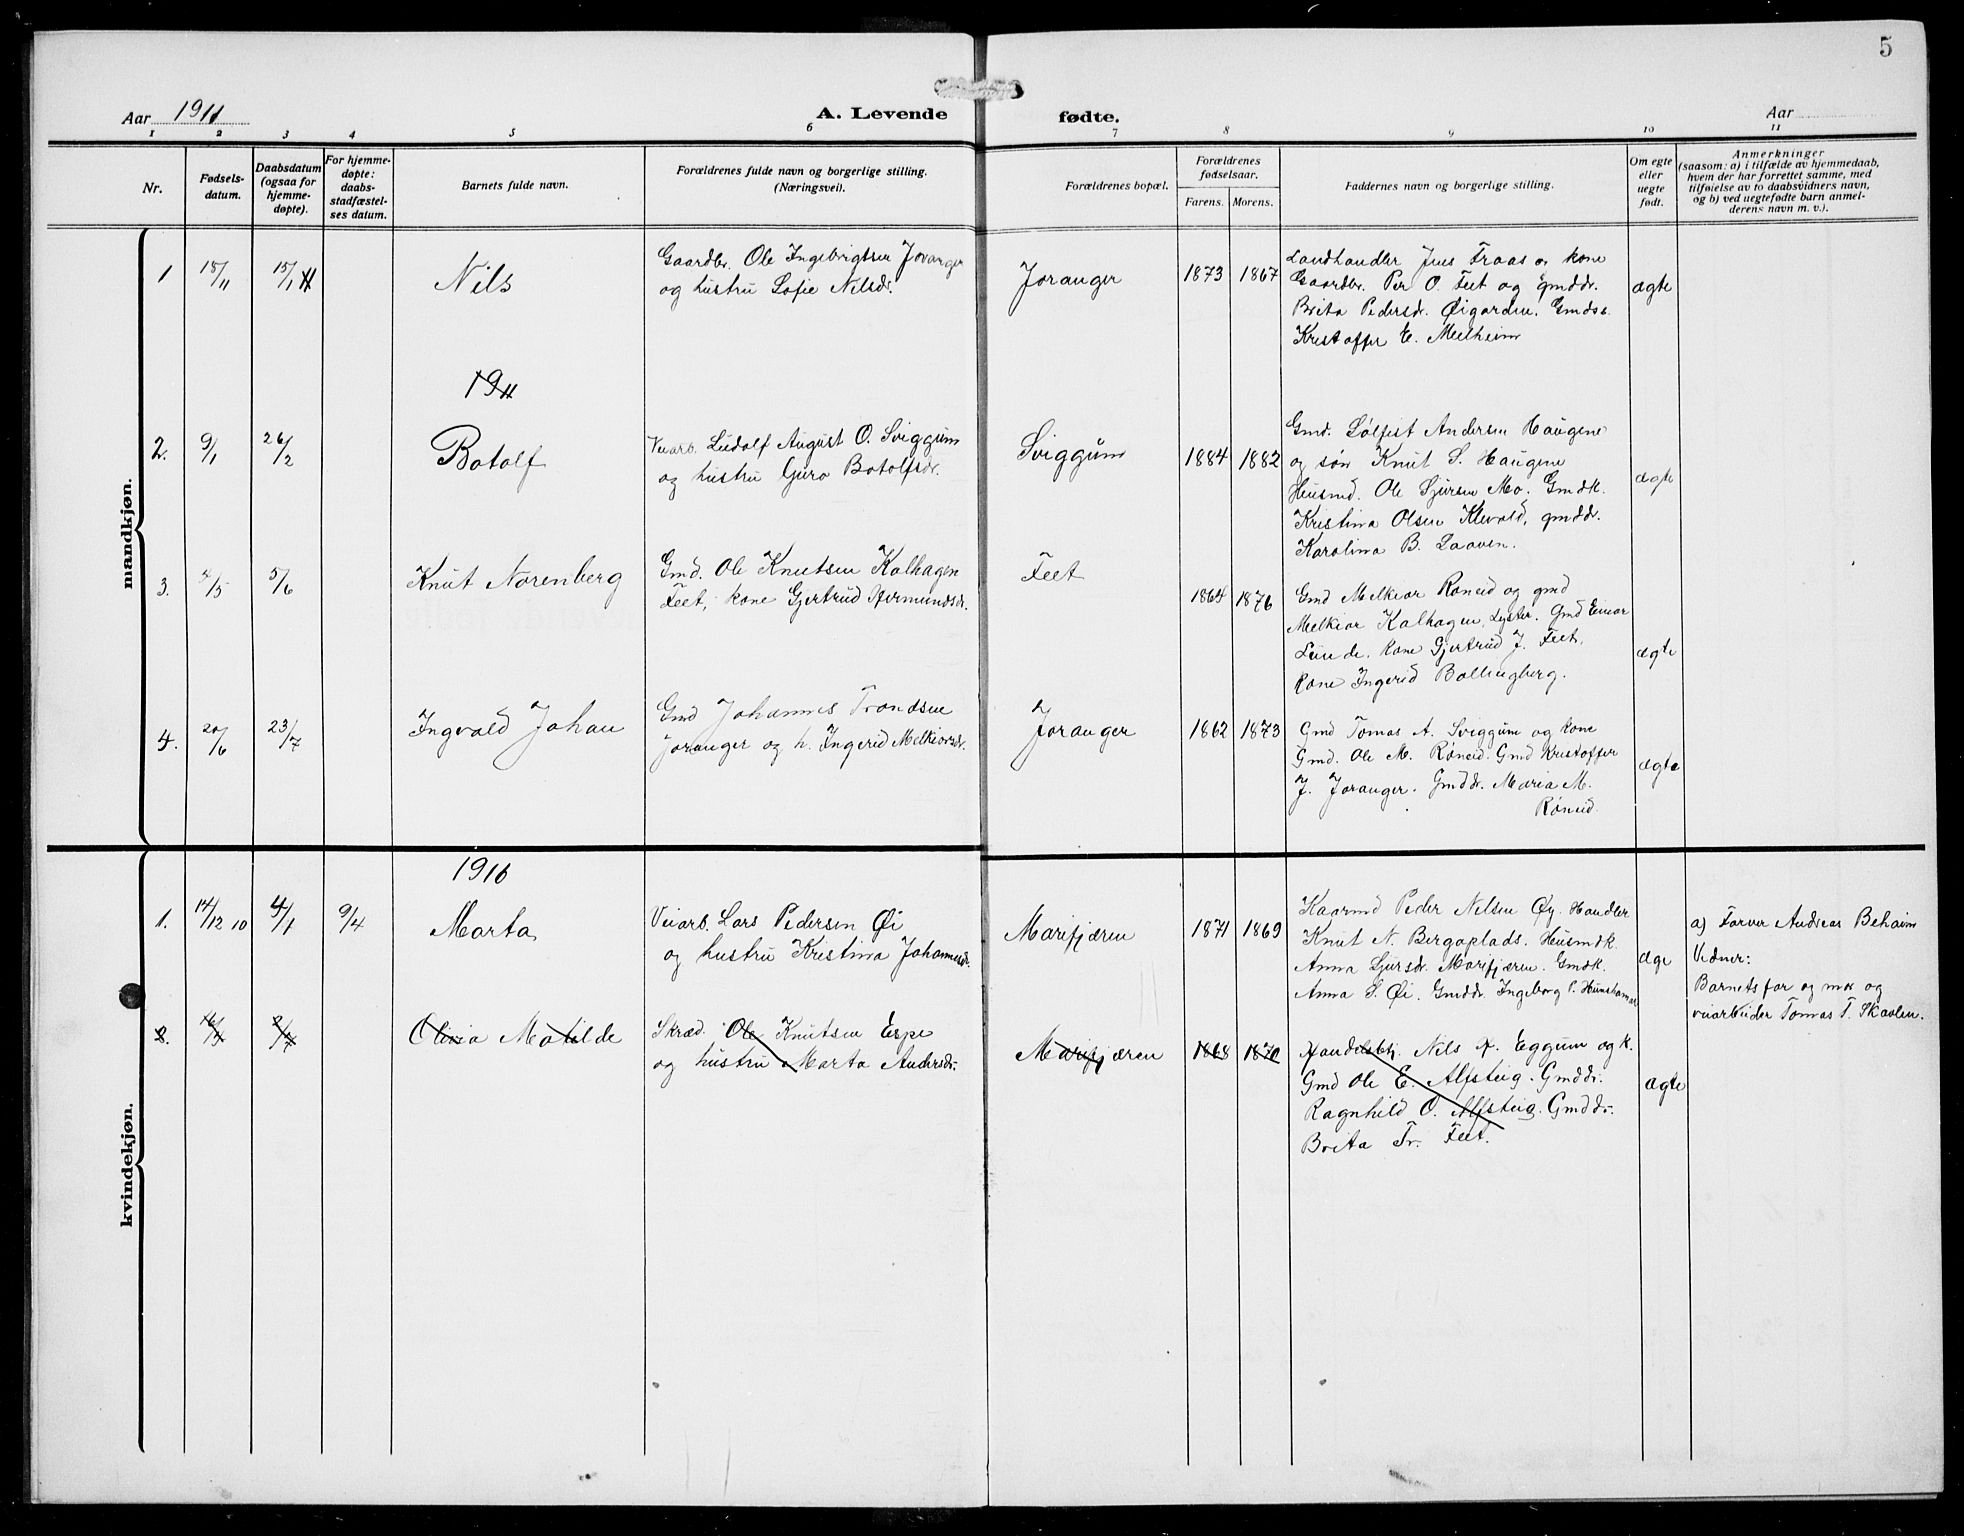 5
Aar 1911
A. Levende fødte.
Aar
1 2 3 4 5 6 7 8 9 10 11
Nr.
Fødsels-
datum.
Daabsdatum
(ogsaa for
hjemme-
døpte).
For hjemme-
døpte:
daabs-
stadfæstel-
ses datum.
Barnets fulde navn.
Forældrenes fulde navn og borgerlige stilling.
(Næringsvei).
Forældrenes bopæl.
Forældrenes
fødselsaar.
Farens. Morens.
Faddernes navn og borgerlige stilling.
Om egte
eller
uegte
født.
Anmerkninger
(saasom: a) i tilfælde av hjemmedaab,
hvem der har forrettet samme, med
tilføielse av to daabsvidners navn,
og b) ved uegtefødte barn anmel-
derens navn m. v.).
mandkjøn.
1 15/11 15/1 Nils
Gaardbr. Ole Ingebrigtsen Joranger
og hustru Sofie Nilsdr.
Joranger 1873 1867
Landhandler Jens Traas og kone
Gaardbr. Per O. Feet og gmddr.
Brita Pedersdr. Øigarden. Gmdss.
Kristoffer E. Melheim
ægte
1911
2. 9/1 26/2 Botolf
Veiarb. Ludolf August O. Sviggum
og hustru Guro Botolfsdr.
Sviggum 1884 1882
Gmd. Sølfest Andersen Haugene
og søn Knut S. Haugene
Husmd. Ole Sjursen Mo. Gmdk.
Kristina Olsen Klevold, gmddr.
Karolina B. Laaven.
ægte
3. 4/5 5/6 Knut Norenberg
Gmd. Ole Knutsen Kalhagen
Feet, kone Gjertrud Hermundsdr.
Feet 1864 1876
Gmd Melkior Røneid og gmd
Melkior Kalhagen, Lyster. Gmd Einar
Leiinde. kone Gjertrud J. Feet.
Kone Ingerid Bollingberg.
ægte
4. 20/6 23/7 Ingvald Johan
Gmd Johannes Trondsen
Joranger og h. Ingerid Melkiorsdr.
Joranger 1862 1873
Gmd Tomas A. Sviggum og kone
Gmd. Ole M. Røneid. Gmd Kristoffer
J. Joranger. Gmddr. Maria M.
Røneid.
ægte
kvindekjøn.
1910
1. 14/12 10 4/1 9/4 Marta
Veiarb. Lars Pedersen Øi
og hustru Kristina Johannesdr.
Marifjæren 1871 1869
Kaarmd Peder Nilsen Øy. Handler
Knut N. Bergaplads. Husmdk.
Anna Sjursdr. Marifjæren. Gmdk.
Anna S. Øi. Gmddr. Ingeborg P. Hunshamar
ægte
a) Farver Andreas Beheim
Vidner:
Barnets far og mor og
veiarbeider Tomas T. Skaalen.
2. 16/5 2/7 Olivia Matilde
Skræd. Ole Knutsen Espe
og hustru Marta Andersdr.
Marifjæren 1868 1870
Handelsbetj. Nils A. Eggum og k.
Gmd Ole E. Alfsteig. Gmddr.
Ragnhild O. Alfsteig. Gmddr.
Brita Tr. Feet.
ægte